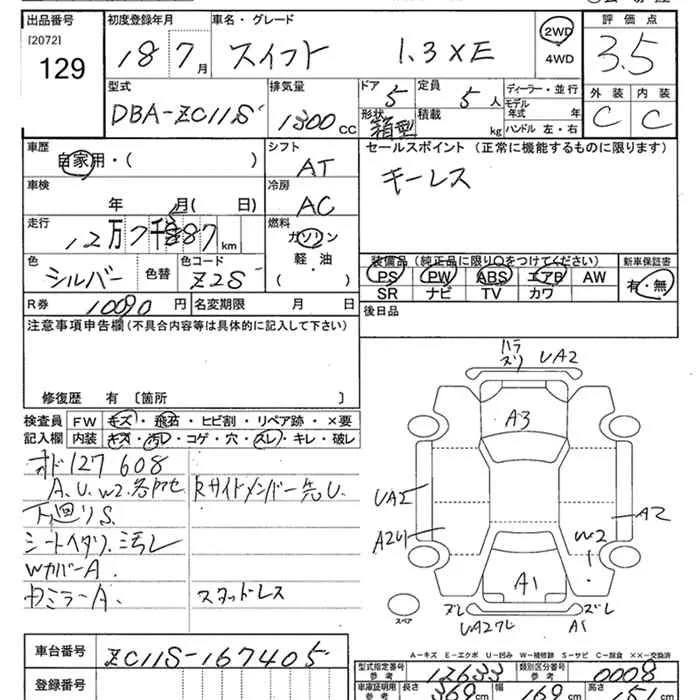 出品番号 初度登録年月 車名・グレード 評価点
[2072] 129 18 7月 スイフト 1.3XE 2WD 4WD 3.5
型式 排気量 ドア 定員 ディーラー・並行 外装 内装
DBA-ZC11S 1300cc 5 5人 モデル年式 年 C C
形状 箱型 積載 kg ハンドル 左・右
車歴 シフト セールスポイント(正常に機能するものに限ります)
自家用・( ) AT キーレス
車検 冷房
年 月( 日) AC
走行 燃料
12万7千 km ガソリン
色 色コード 軽・油 装備品(純正品に限り○をつけてください) 新車保証書
シルバー 色替 Z2S ( ) PS PW ABS エアB AW 有・無
SR ナビ TV カワ
R券 10090円 名変期限 月 日 後日品
注意事項申告欄(不具合内容等は具体的に記入して下さい)
修復歴 有 [箇所
検査員 FW キズ・飛石・ヒビ割・リペア跡・×要
記入欄 内装 キズ・汚レ・コゲ・穴・スレ・キレ・破レ
127608
A.U.W2.各 Rサイドメンバー先U.
下廻りS.
シートヘタリ.汚レ
WカバーA.
ミラーA. スタッドレス
UA2
A3
UA2 A2
A2U W2
A1
ズレ ズレ
スペア A1
A-キズ E-エクボ U-凹み W-補修跡 S-サビ C-腐食 ××-交換済
車台番号 ZC11S-167405
登録番号
型式指定番号 参考 12633 類別区分番号 参考 0008
車庫証明用 参考 長さ 369cm 幅 169cm 高さ cm